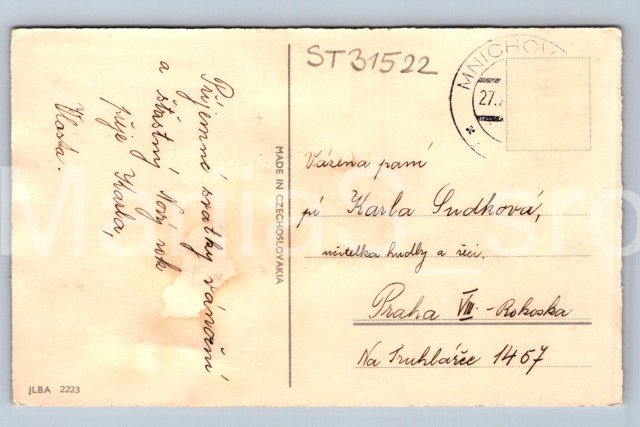 ST31522
MNICHOV
27.
Příjemné svátky vánoční
a šťastný Nový rok
přeje Karla,
Vlasta.
MADE IN CZECHOSLOVAKIA
Vážená paní
pí Karla Sudková,
učitelka hudby a řeči.
Praha VIII. - Rokoska
Na Truhlářce 1467
JLBA 2223